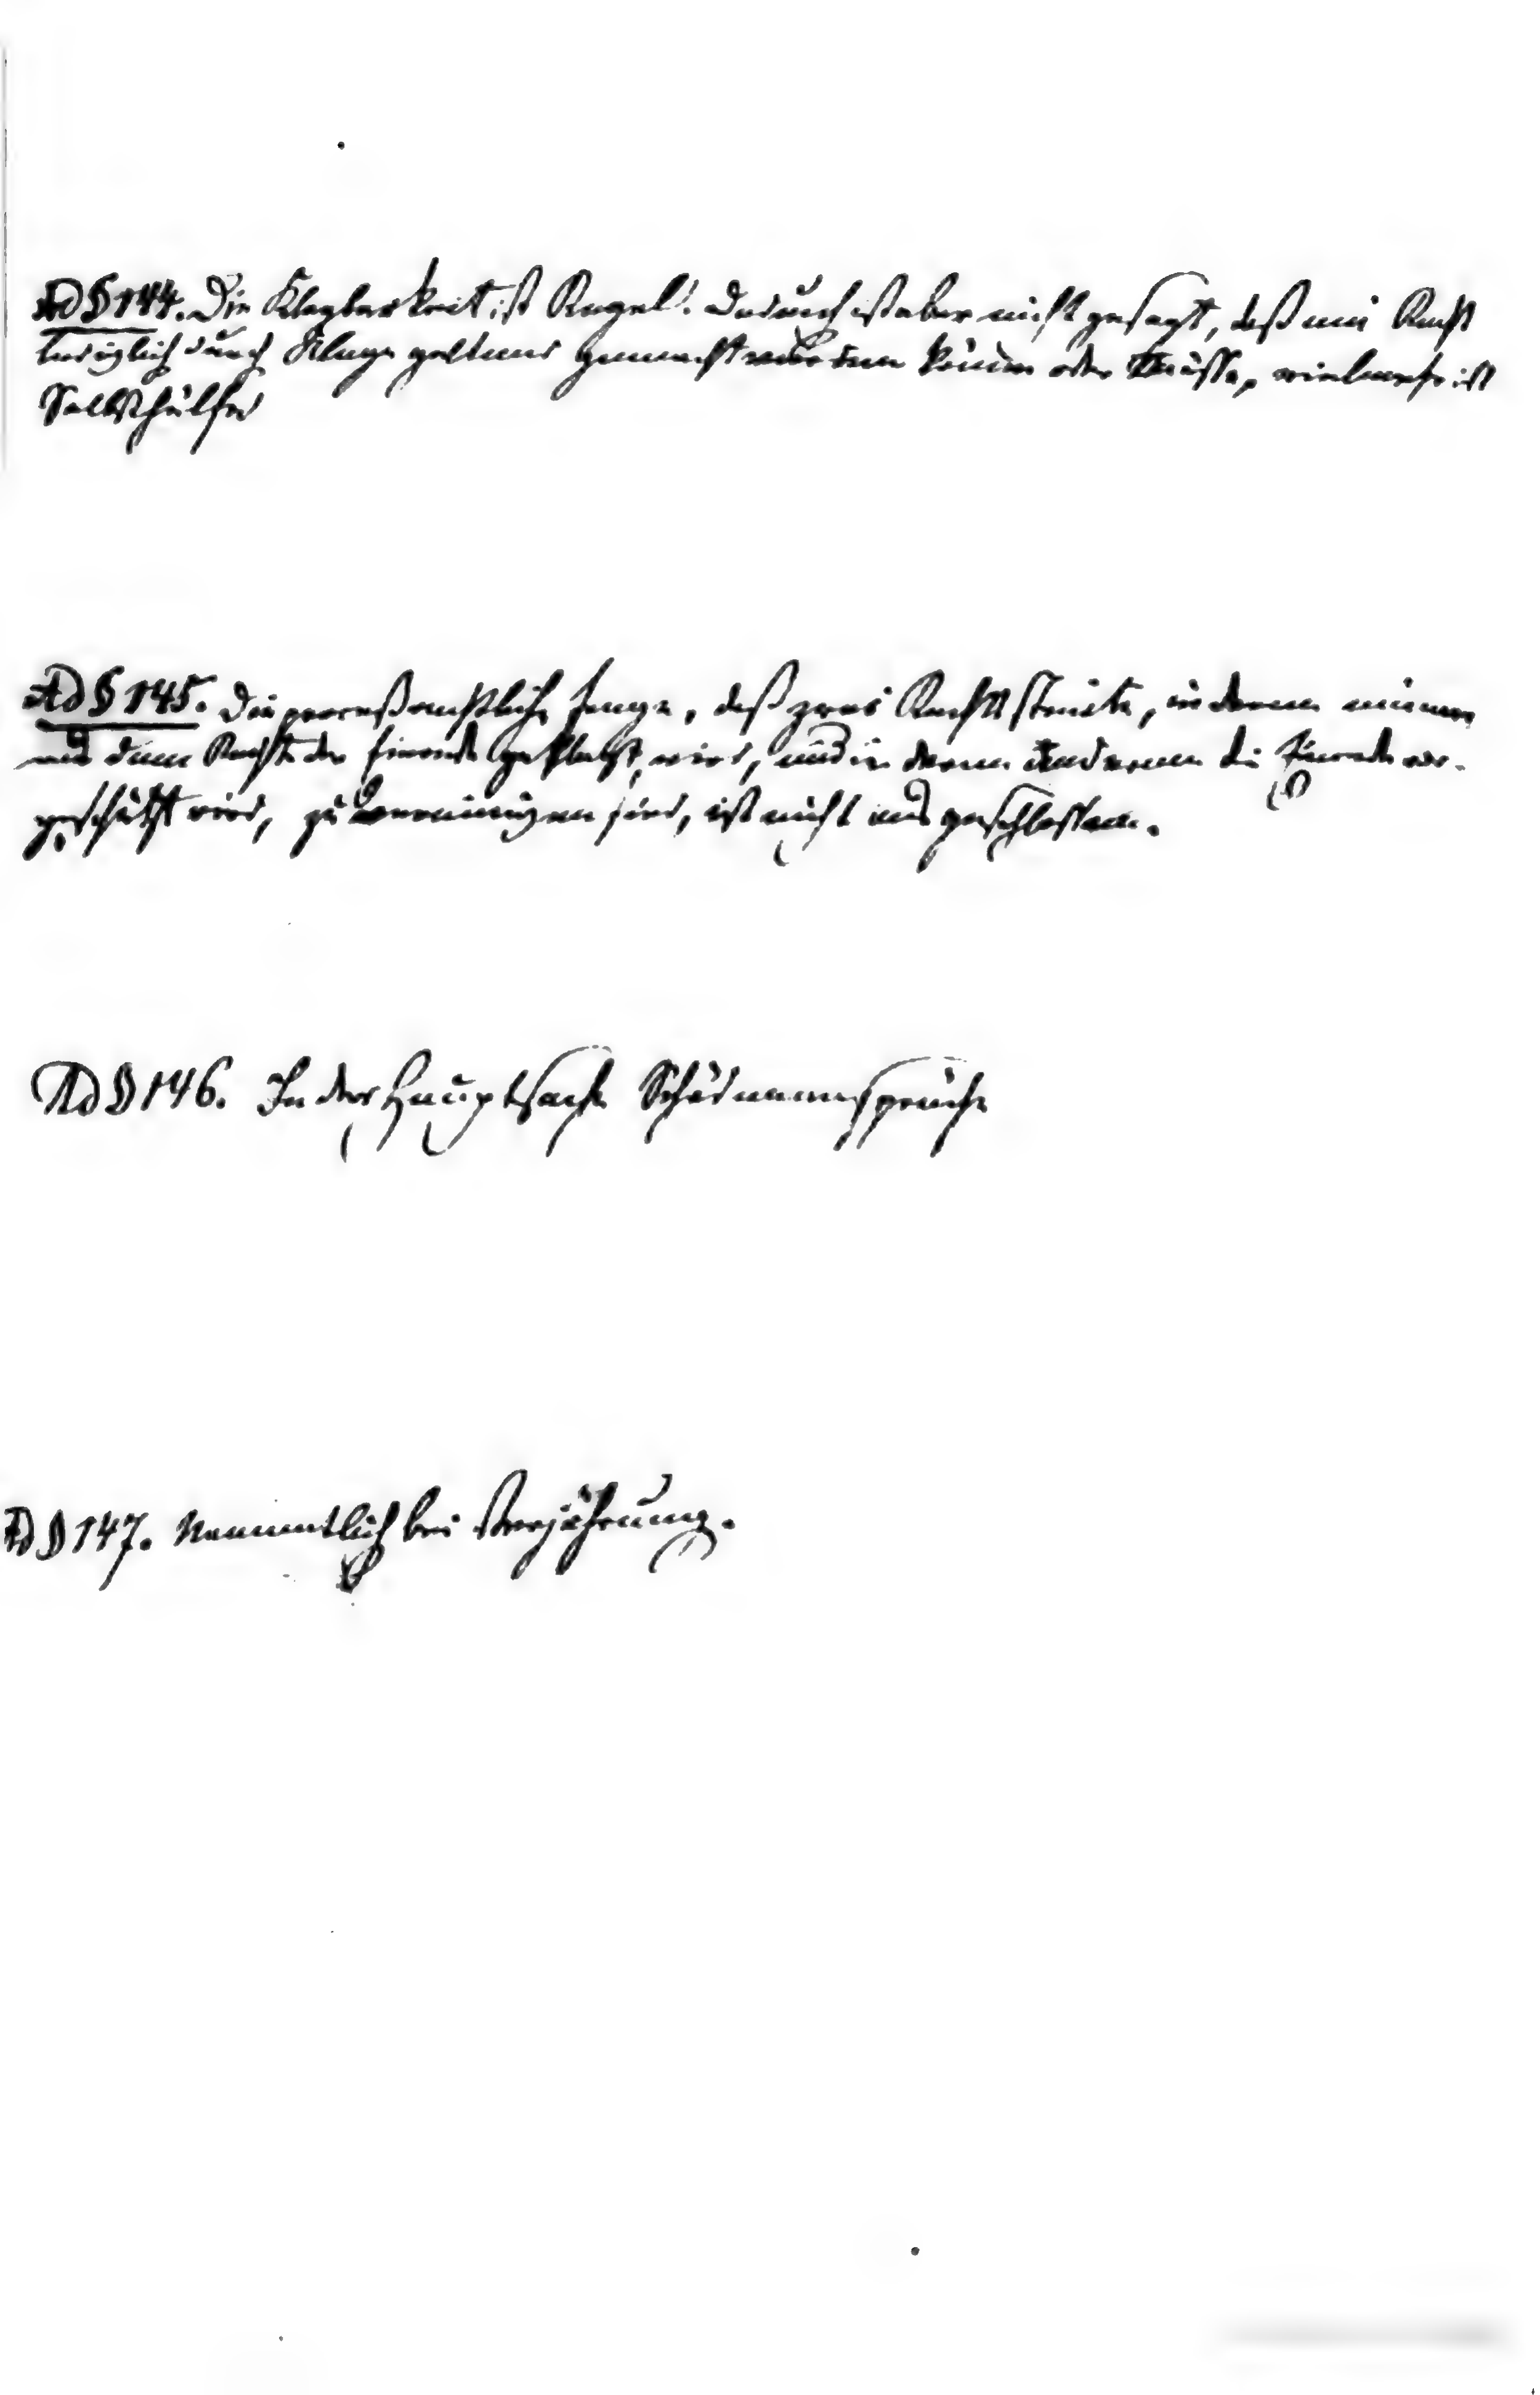 Ad § 144. Die Klagbarkeit ist Regel. Dadurch ist aber nicht gesagt, daß ein Recht
lediglich durch Klage geltend gemacht werden könne oder müsse, vielmehr ist
Selbsthülfe
Ad § 145. Die proceßrechtliche Frage, daß zwei Rechtsstreite, in deren einem
aus dem Rechte der Einrede geklagt wird, und in deren anderem die Einrede vor-
geschützt wird, zu vereinigen sind, ist nicht ausgeschlossen.
Ad § 146. In der Hauptsache Schiedsmannssprüche
Ad § 147. Namentlich bei Verjährung.